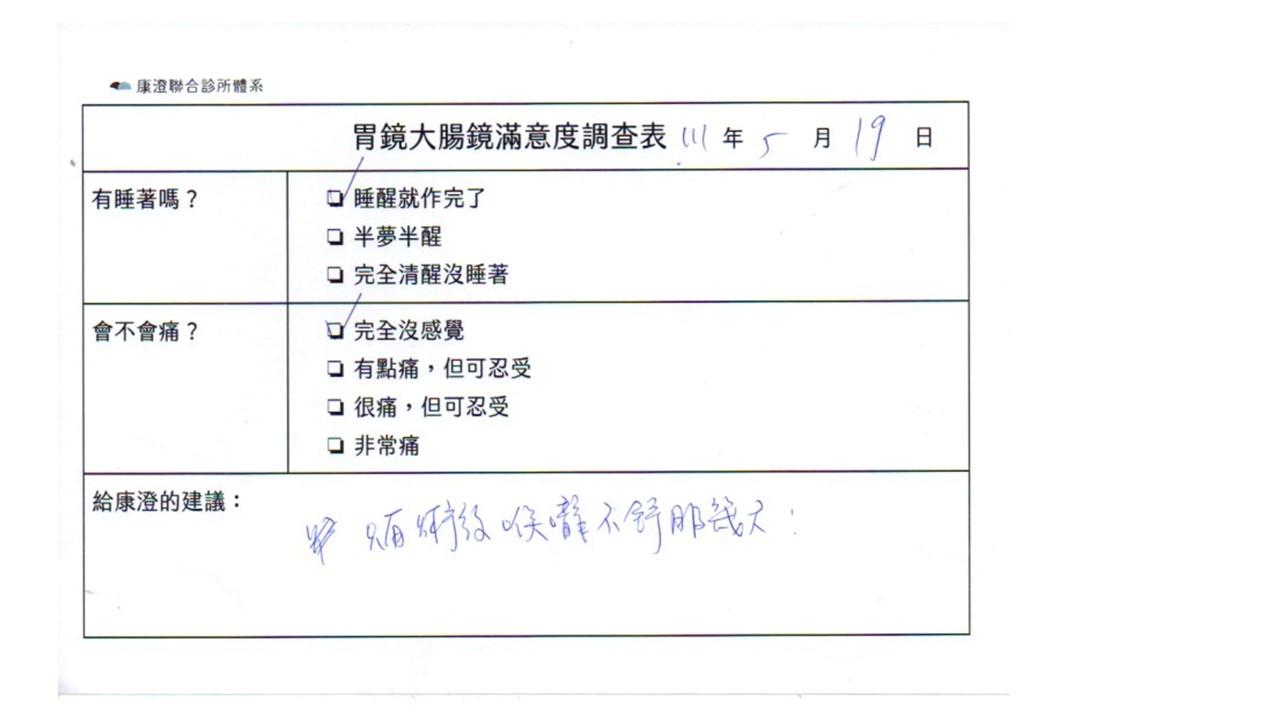 康澄聯合診所體系
胃鏡大腸鏡滿意度調查表 111 年 5 月 19 日
有睡著嗎？
☑ 睡醒就作完了
❏ 半夢半醒
❏ 完全清醒沒睡著
會不會痛？
☑ 完全沒感覺
❏ 有點痛，但可忍受
❏ 很痛，但可忍受
❏ 非常痛
給康澄的建議：
喉嚨不舒服幾天